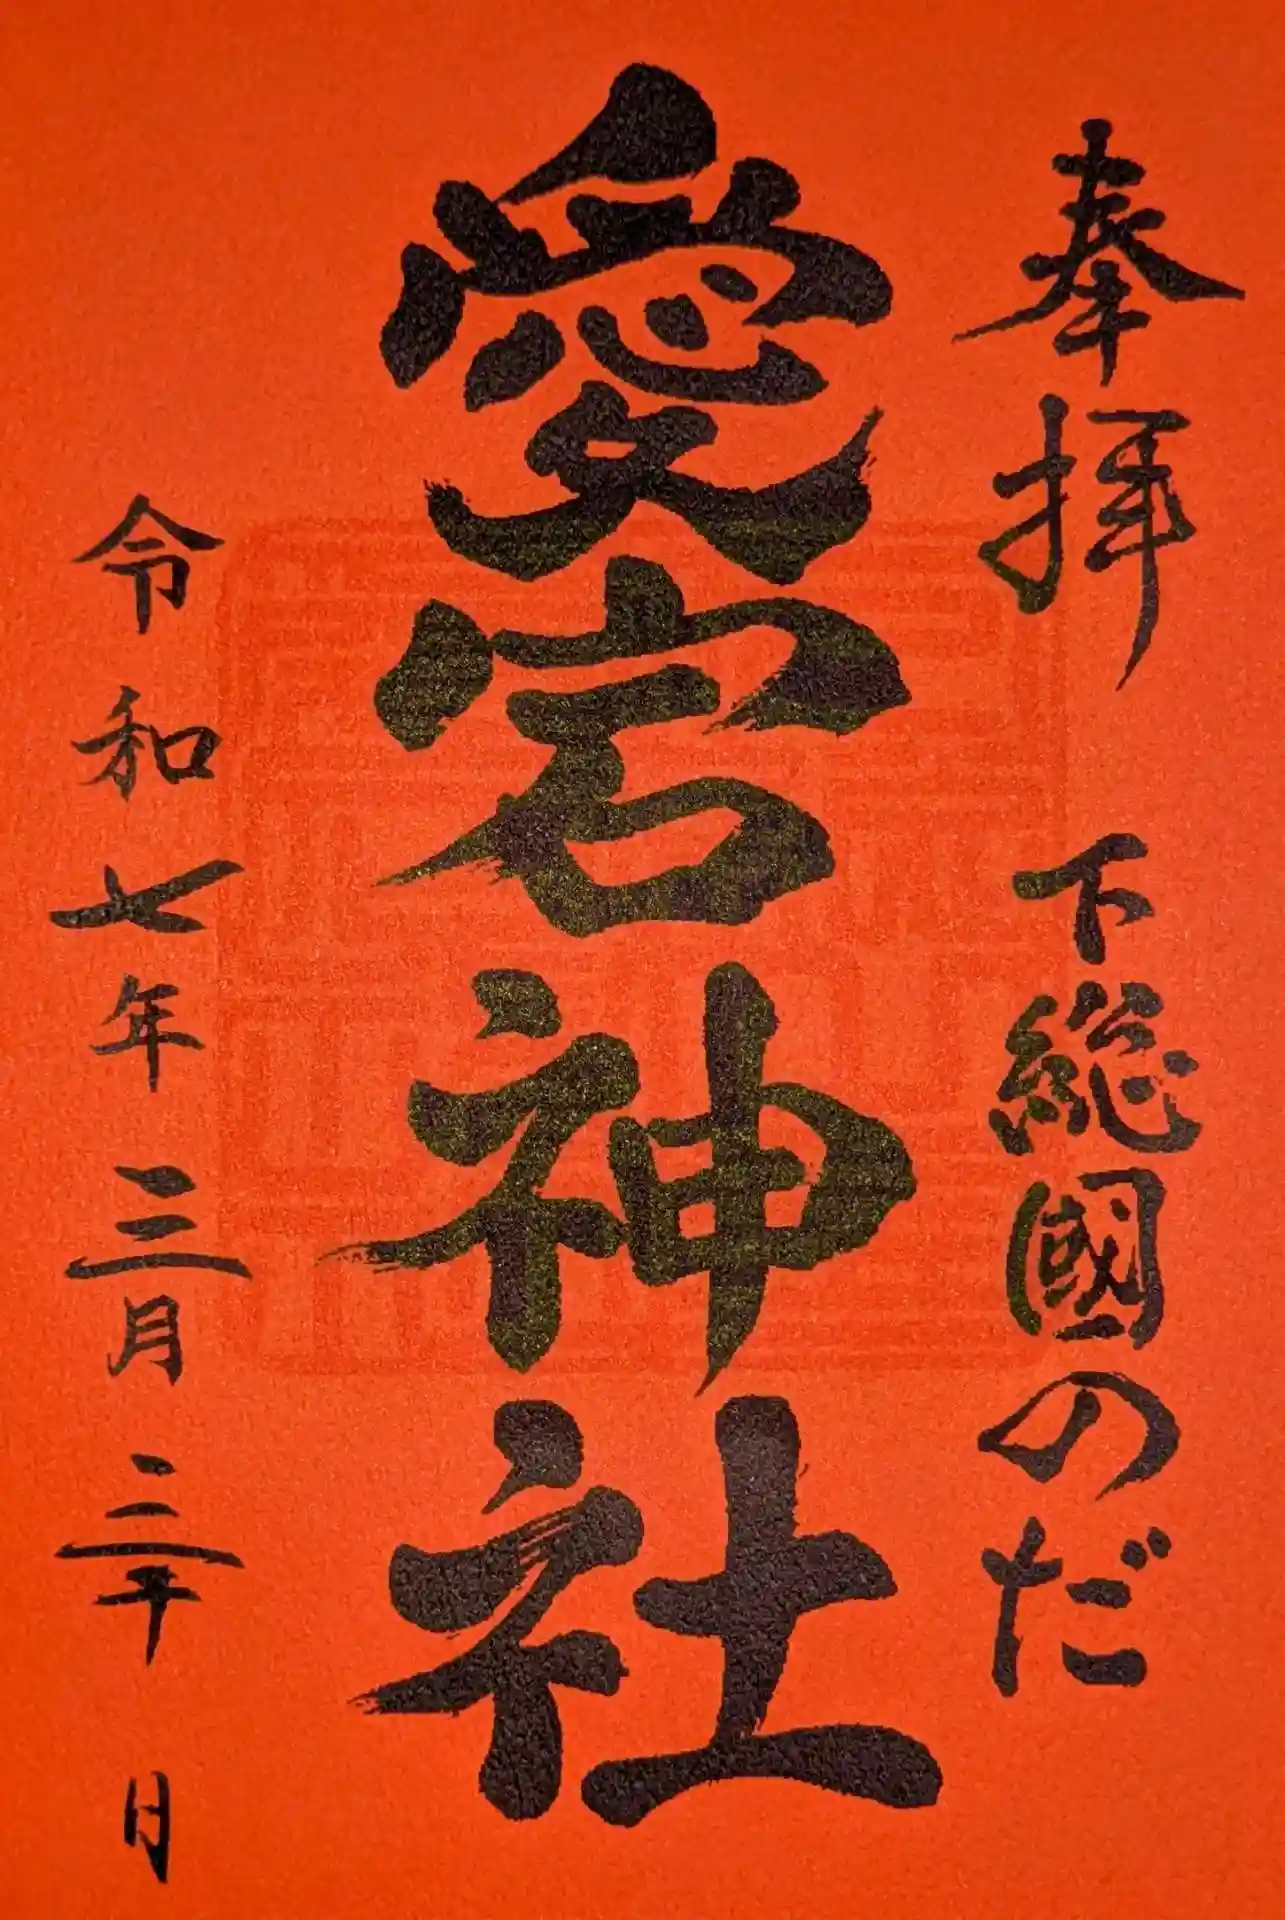 奉拝 下総國のだ
愛宕神社
令和七年三月三十日